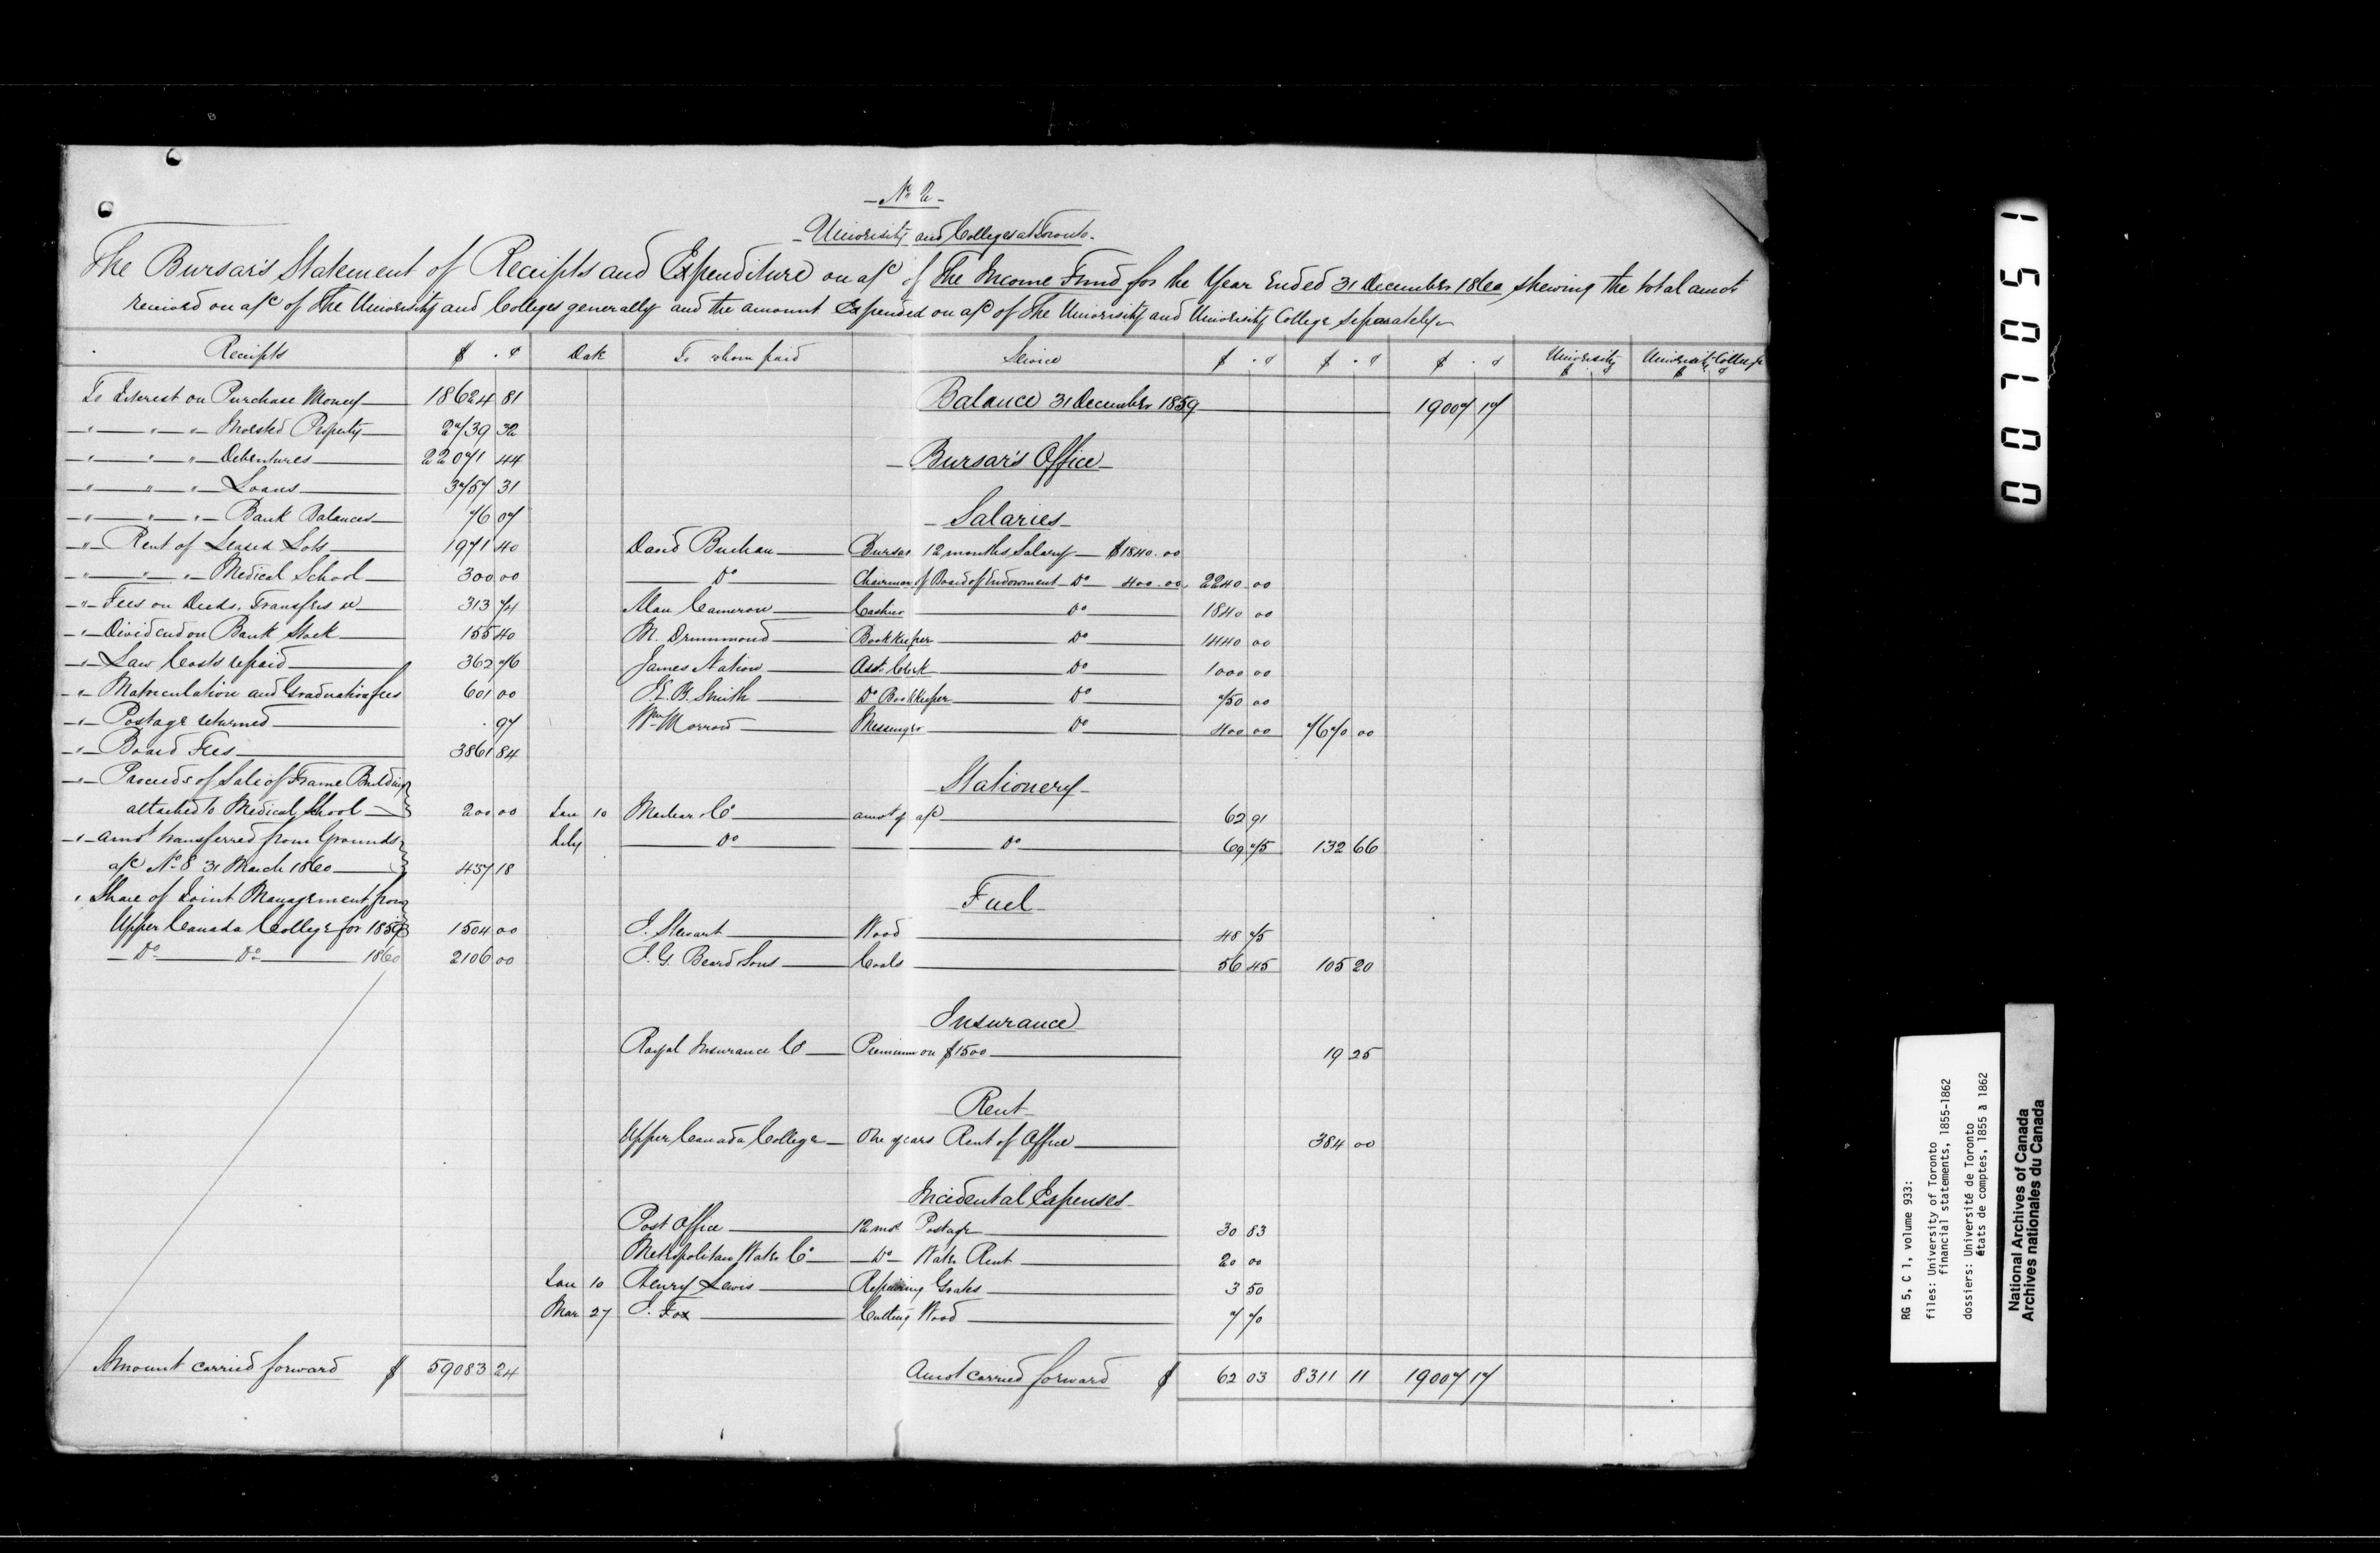 - No 2 -
- University and Colleges at Toronto -
The Bursar's Statement of Receipts and Expenditure on a/c of The Income Fund for the Year Ended 31 December 1860, shewing the total amot
received on a/c of The University and Colleges generally and the amount Expended on a/c of The University and University College Separately
Receipts $ . c Date To whom paid Service $ . c $ . c $ . c University $ c University College $ c
To Interest on Purchase Money 18624 81 Balance 31 December 1859 19007 17
" " " Invested Property 2739 32
" " " Debentures 22071 44 Bursar's Office
" " " Loans 3757 31
" " " Bank Balances 76 07 Salaries
" Rent of Leased Lots 1971 40 David Buchan Bursar 12 months Salary $1840.00
" " " Medical School 300 00 Do Chairman of Board of Endowment Do 400.00 2240 00
" Fees on Deeds, Transfers &c 313 74 Alan Cameron Cashier Do 1840 00
" Dividend on Bank Stock 155 40 M. Drummond Bookkeeper Do 1440 00
" Law Costs repaid 362 76 James Nation Asst. Clerk Do 1000 00
" Matriculation and Graduation fees 601 00 J.E.B. Smith Do Bookkeeper Do 750 00
" Postage returned . 97 Wm Morrow Messenger Do 400 00 7670 00
" Board Fees 3861 84
" Proceeds of Sale of Frame Building Stationery
attached to Medical School 200 00 Jan 10 Maclear & Co amot of a/c 62 91
" amot transferred from Grounds July Do Do 69 75 132 66
a/c No 8 31 March 1860 437 18
" Share of Joint Management from Fuel
Upper Canada College for 1859 1504 00 J. Stewart Wood 48 75
Do Do 1860 2106 00 J.G. Beard & Sons Coals 56 45 105 20
Insurance
Royal Insurance Co Premium on $1500 19 25
Rent
Upper Canada College One years Rent of Office 384 00
Incidental Expenses
Post Office 12 mos Postage 30 83
Metropolitan Water Co Do Water Rent 20 00
Jan 10 Henry Lewis Repairing Grates 3 50
Mar 27 J. Fox Cutting Wood 7 70
Amount carried forward $ 59083 24 Amot carried forward $ 62 03 8311 11 19007 17
0 0 1 0 5 1
RG 5, C 1, volume 933:
files: University of Toronto
financial statements, 1855-1862
dossiers: Université de Toronto
états de comptes, 1855 à 1862
National Archives of Canada
Archives nationales du Canada